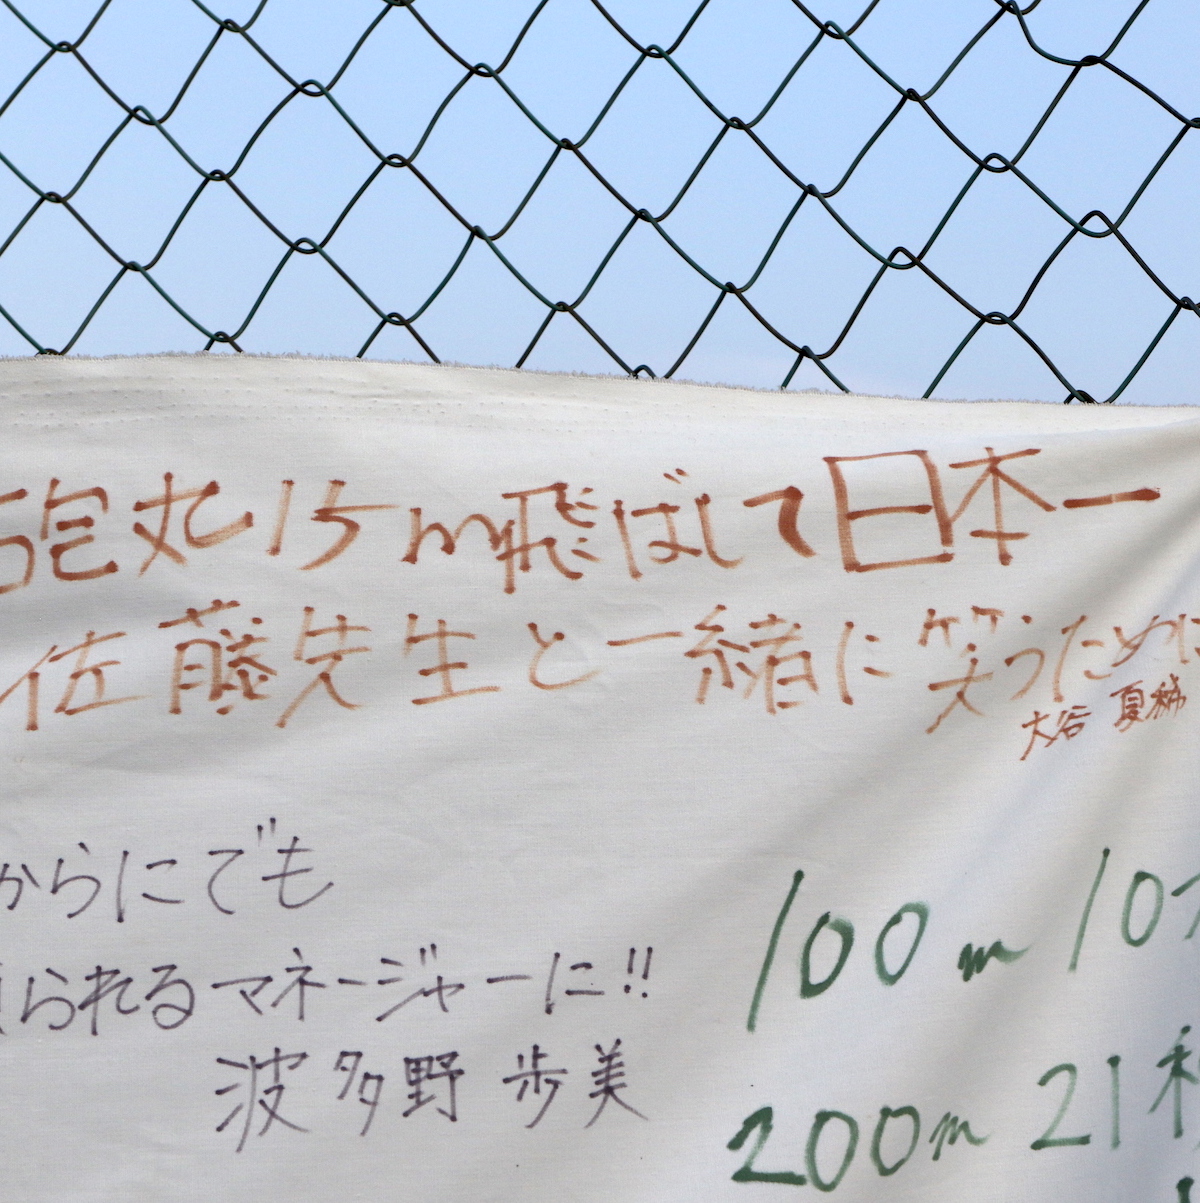 砲丸15m飛ばして日本一
佐藤先生と一緒に笑うために
大谷 夏稀
からにでも
られるマネージャーに!!
波多野 歩美
100m 10
200m 21秒